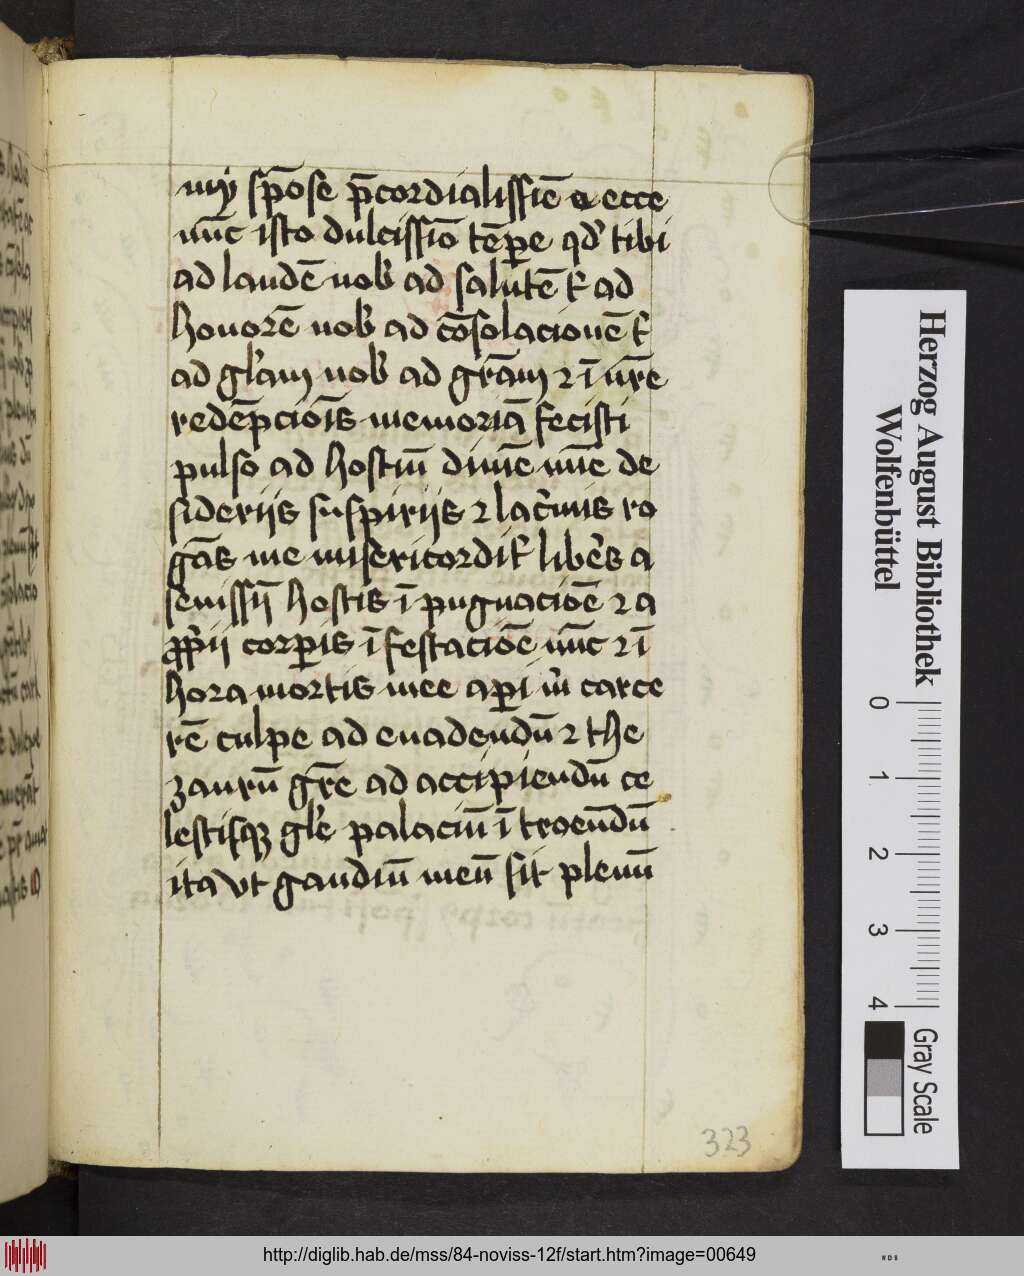 mý sp̄ose p̄cordialissīe ecce
nūc isto dulcissīo tēꝑe qd' tibi
ad laudē nob' ad salutē ⁊ ad
honorē nob' ad cōsolacionē ⁊
ad gl'am nob' ad gr̄am ⁊ ī nr̄e
redēpciōis memoriā fecisti
pulso ad hostiū dimē nūe de
siderijs suspirijs ⁊ lac'mis ro
gās me misericordit' lib'es a
seuissīi hostis īpugnaciōe ⁊ a
ꝓp'ii corꝑis īfestaciōe nūc ⁊ ī
hora mortis mee aꝑi m' carce
rē culpe ad euadendū ⁊ the
zaurū gr̄e ad accipiendū ce
lestisqꝫ gl'e palaciū ītroēndū
ita vt gaudiū meū sit plenū
323
Herzog August Bibliothek
Wolfenbüttel
0 1 2 3 4
Gray Scale
http://diglib.hab.de/mss/84-noviss-12f/start.htm?image=00649